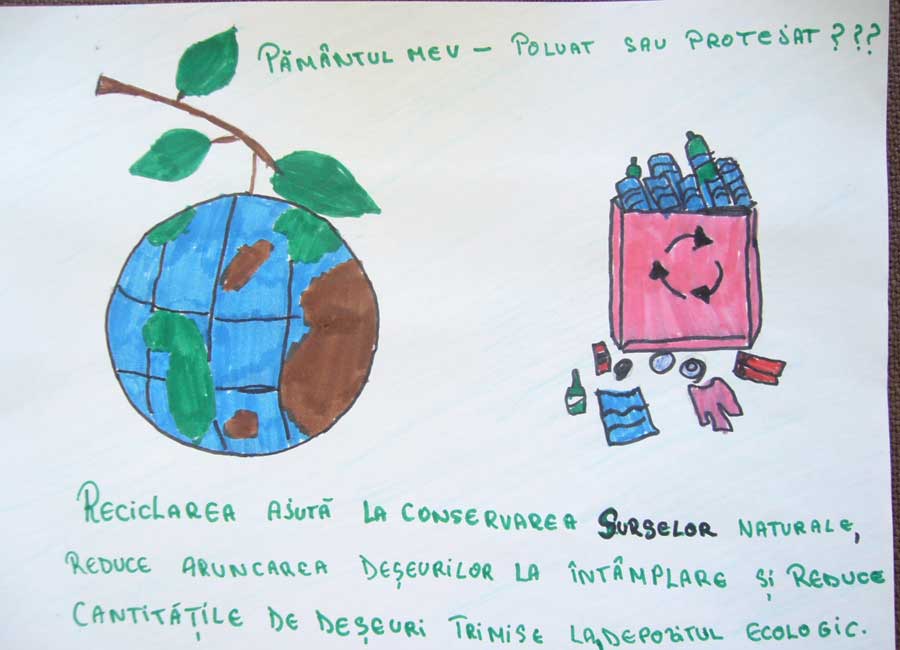 PĂMÂNTUL MEU – POLUAT SAU PROTEJAT ???
RECICLAREA AJUTĂ LA CONSERVAREA SURSELOR NATURALE,
REDUCE ARUNCAREA DEȘEURILOR LA ÎNTÂMPLARE ȘI REDUCE
CANTITĂȚILE DE DEȘEURI TRIMISE LA DEPOZITUL ECOLOGIC.